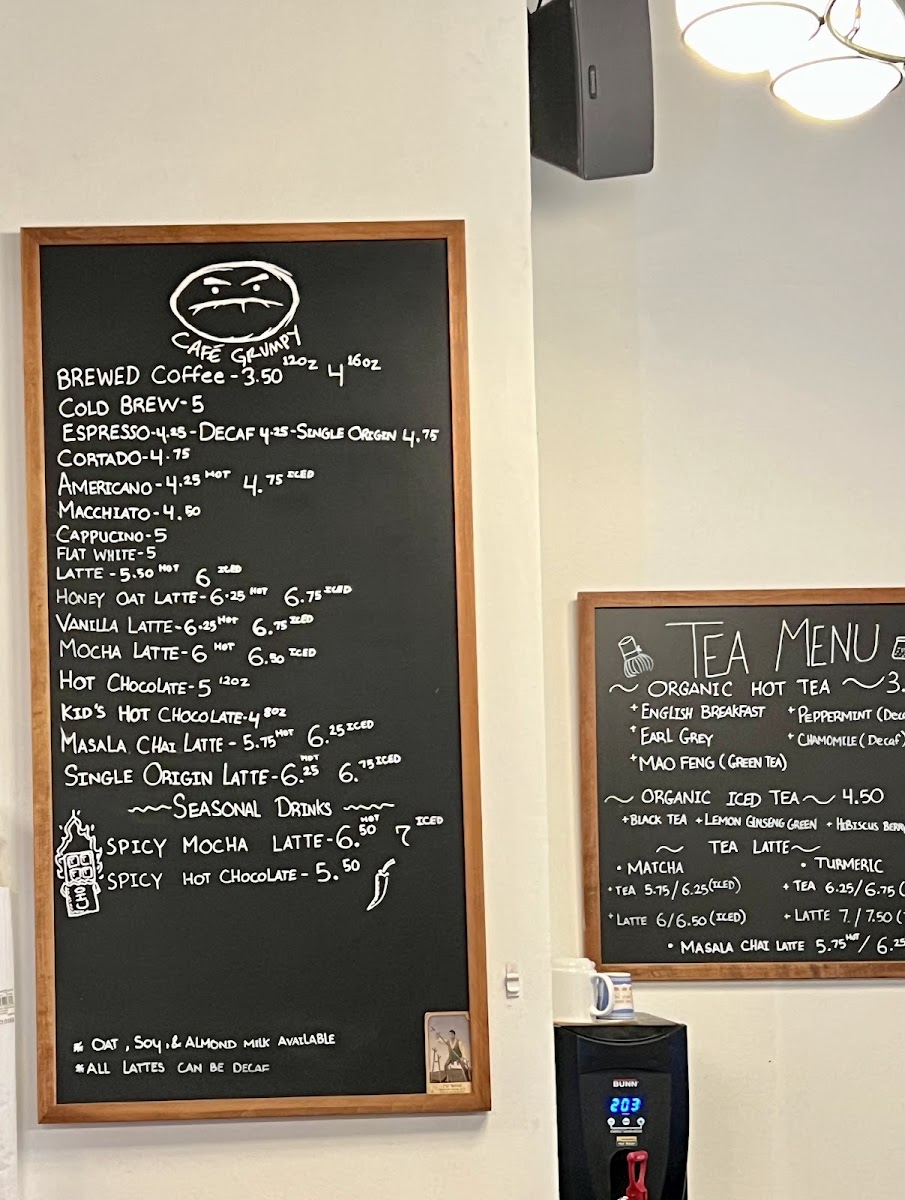 CAFÉ GRUMPY
BREWED Coffee - 3.50 12oz 4 16oz
COLD BREW - 5
ESPRESSO - 4.25 - DECAF 4.25 - SINGLE ORIGIN 4.75
CORTADO - 4.75
AMERICANO - 4.25 HOT 4.75 ICED
MACCHIATO - 4.50
CAPPUCINO - 5
FLAT WHITE - 5
LATTE - 5.50 HOT 6 ICED
HONEY OAT LATTE - 6.25 HOT 6.75 ICED
VANILLA LATTE - 6.25 HOT 6.75 ICED
MOCHA LATTE - 6 HOT 6.50 ICED
HOT CHOCOLATE - 5 12oz
KID'S HOT CHOCOLATE - 4 8oz
MASALA CHAI LATTE - 5.75 HOT 6.25 ICED
SINGLE ORIGIN LATTE - 6.25 HOT 6.75 ICED
~~ SEASONAL DRINKS ~~
SPICY MOCHA LATTE - 6.50 HOT 7 ICED
SPICY HOT CHOCOLATE - 5.50
CHO
* OAT, SOY, & ALMOND MILK AVAILABLE
* ALL LATTES CAN BE DECAF
TEA MENU
~ ORGANIC HOT TEA ~ 3.
+ ENGLISH BREAKFAST + PEPPERMINT (Deca
+ EARL GREY + CHAMOMILE (Decaf)
+ MAO FENG (GREEN TEA)
~ ORGANIC ICED TEA ~ 4.50
+ BLACK TEA + LEMON GINSENG GREEN + HIBISCUS BERRY
~ TEA LATTE ~
• MATCHA • TURMERIC
+ TEA 5.75/6.25 (ICED) + TEA 6.25/6.75 (
+ LATTE 6/6.50 (ICED) + LATTE 7./7.50 (
• MASALA CHAI LATTE 5.75 HOT / 6.25
BUNN
203